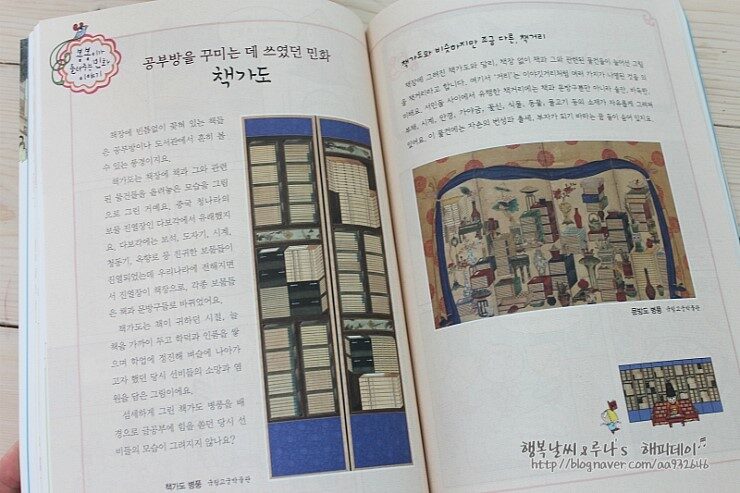 봉봉이가
들려주는 민화
이야기
공부방을 꾸미는 데 쓰였던 민화
책가도
책장에 빈틈없이 꽂혀 있는 책들
은 공부방이나 도서관에서 흔히 볼
수 있는 풍경이지요.
책가도는 책장에 책과 그와 관련
된 물건들을 올려놓은 모습을 그림
으로 그린 거예요. 중국 청나라의
보물 진열장인 다보각에서 유래했지
요. 다보각에는 보석, 도자기, 시계,
청동기, 옥향로 등 진귀한 보물들이
진열되었는데 우리나라에 전해지면
서 진열장이 책장으로, 각종 보물들
은 책과 문방구들로 바뀌었어요.
책가도는 책이 귀하던 시절, 늘
책을 가까이 두고 학덕과 인품을 쌓
으며 학업에 정진해 벼슬에 나아가
고자 했던 당시 선비들의 소망과 염
원을 담은 그림이에요.
섬세하게 그린 책가도 병풍을 배
경으로 글공부에 힘을 쏟던 당시 선
비들의 모습이 그려지지 않나요?
책가도 병풍 국립고궁박물관
책가도와 비슷하지만 조금 다른, 책거리
책장에 그려진 책가도와 달리, 책장 없이 책과 그와 관련된 물건들이 놓여진 그림
을 책거리라고 합니다. 여기서 '거리'는 이야깃거리처럼 여러 가지가 나열된 것을 의
미해요. 서민들 사이에서 유행한 책거리에는 책과 문방구뿐만 아니라 술잔, 바둑판,
부채, 시계, 안경, 가야금, 꽃신, 식물, 동물, 물고기 등의 소재가 자유롭게 그려져
있어요. 이 물건에는 자손의 번성과 출세, 부자가 되기 바라는 꿈 등이 숨어 있지요.
문방도 병풍 국립고궁박물관
행복날씨 &루나's 해피데이
http://blog.naver.com/aa932646